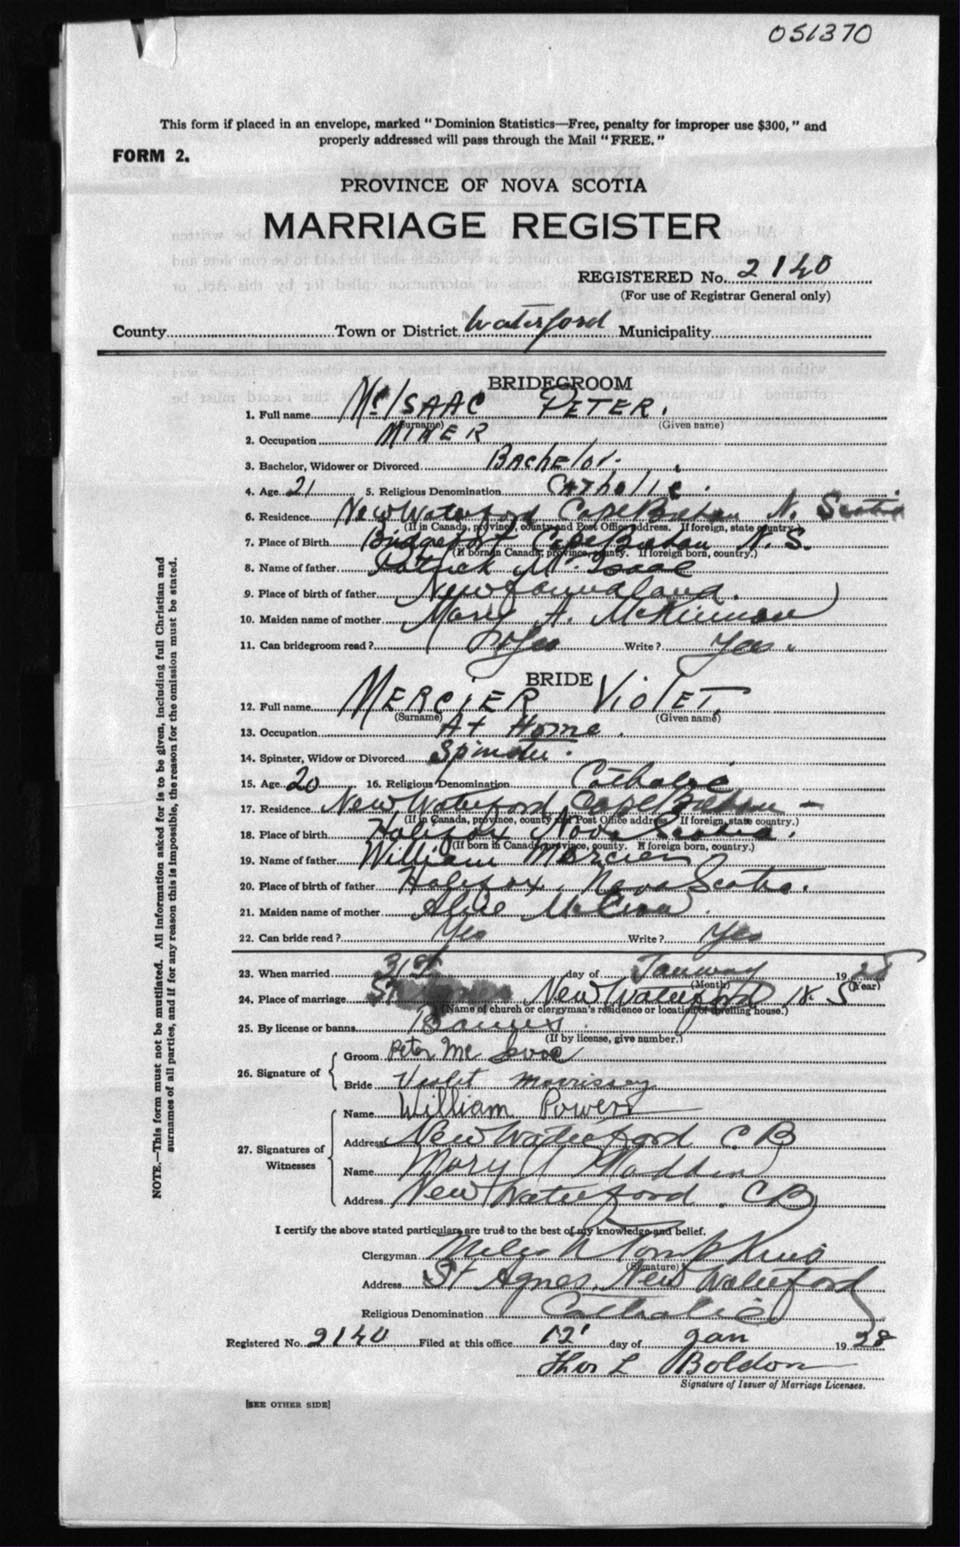 051370
This form if placed in an envelope, marked "Dominion Statistics—Free, penalty for improper use $300," and
properly addressed will pass through the Mail "FREE."
FORM 2.
PROVINCE OF NOVA SCOTIA
MARRIAGE REGISTER
REGISTERED No. 2140
(For use of Registrar General only)
County Town or District Waterford Municipality
BRIDEGROOM
1. Full name McISAAC PETER.
(Surname) (Given name)
2. Occupation MINER
3. Bachelor, Widower or Divorced Bachelor.
4. Age 21 5. Religious Denomination Catholic.
6. Residence New Waterford Cape Breton N. Scotia
(If in Canada, province, county and Post Office address. If foreign, state country.)
7. Place of Birth Cape Breton N.S.
(If born in Canada, province, county. If foreign born, country.)
8. Name of father Patrick McIsaac
9. Place of birth of father Newfoundland.
10. Maiden name of mother Mary A. McKinnon
11. Can bridegroom read? Yes Write? Yes.
BRIDE
12. Full name MERCIER VIOLET.
(Surname) (Given name)
13. Occupation At Home.
14. Spinster, Widow or Divorced Spinster.
15. Age 20 16. Religious Denomination Catholic
17. Residence New Waterford Cape Breton -
(If in Canada, province, county and Post Office address. If foreign, state country.)
18. Place of birth Halifax Nova Scotia.
(If born in Canada, province, county. If foreign born, country.)
19. Name of father William Mercier
20. Place of birth of father Halifax, Nova Scotia.
21. Maiden name of mother Alice
22. Can bride read? Yes Write? Yes
23. When married day of January 19
(Month) (Year)
24. Place of marriage New Waterford N.S
(Name of church or clergyman's residence or location of dwelling house.)
25. By license or banns Banns
(If by license, give number.)
26. Signature of
Groom Peter Mc Isaac
Bride Violet Morrissey
27. Signatures of Witnesses
Name William Power
Address New Waterford C B
Name Mary
Address New Waterford. C B
I certify the above stated particulars are true to the best of my knowledge and belief.
Clergyman Miles N Tompkins
(Signature)
Address St Agnes, New Waterford
Religious Denomination Catholic
Registered No. 2140 Filed at this office 12' day of Jan 1928
Thos L Boldon
Signature of Issuer of Marriage Licenses.
[SEE OTHER SIDE]
NOTE.—This form must not be mutilated. All information asked for is to be given, including full Christian and
surnames of all parties, and if for any reason this is impossible, the reason for the omission must be stated.